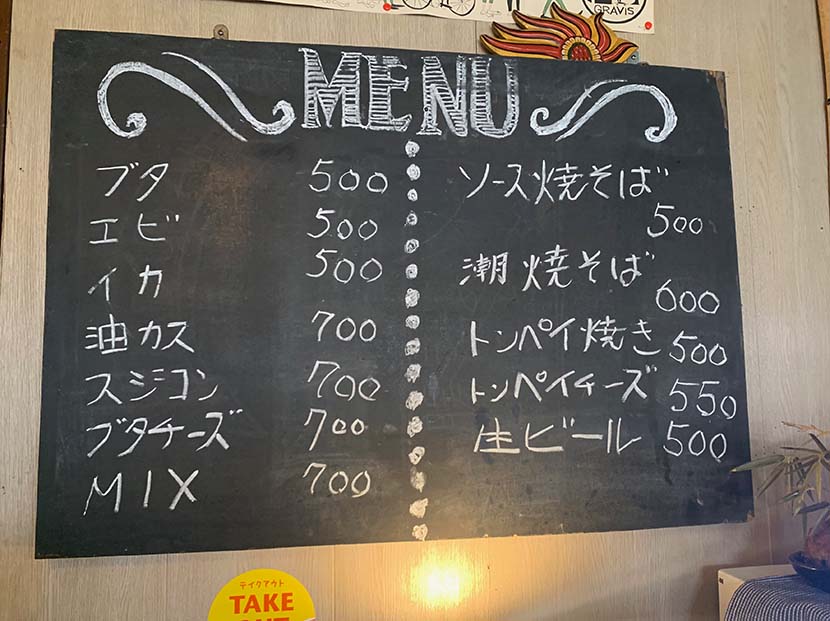 GRAVIS
MENU
ブタ 500
エビ 500
イカ 500
油カス 700
スジコン 700
ブタチーズ 700
MIX 700
ソース焼そば
500
潮焼そば
600
トンペイ焼き 500
トンペイチーズ 550
生ビール 500
テイクアウト
TAKE